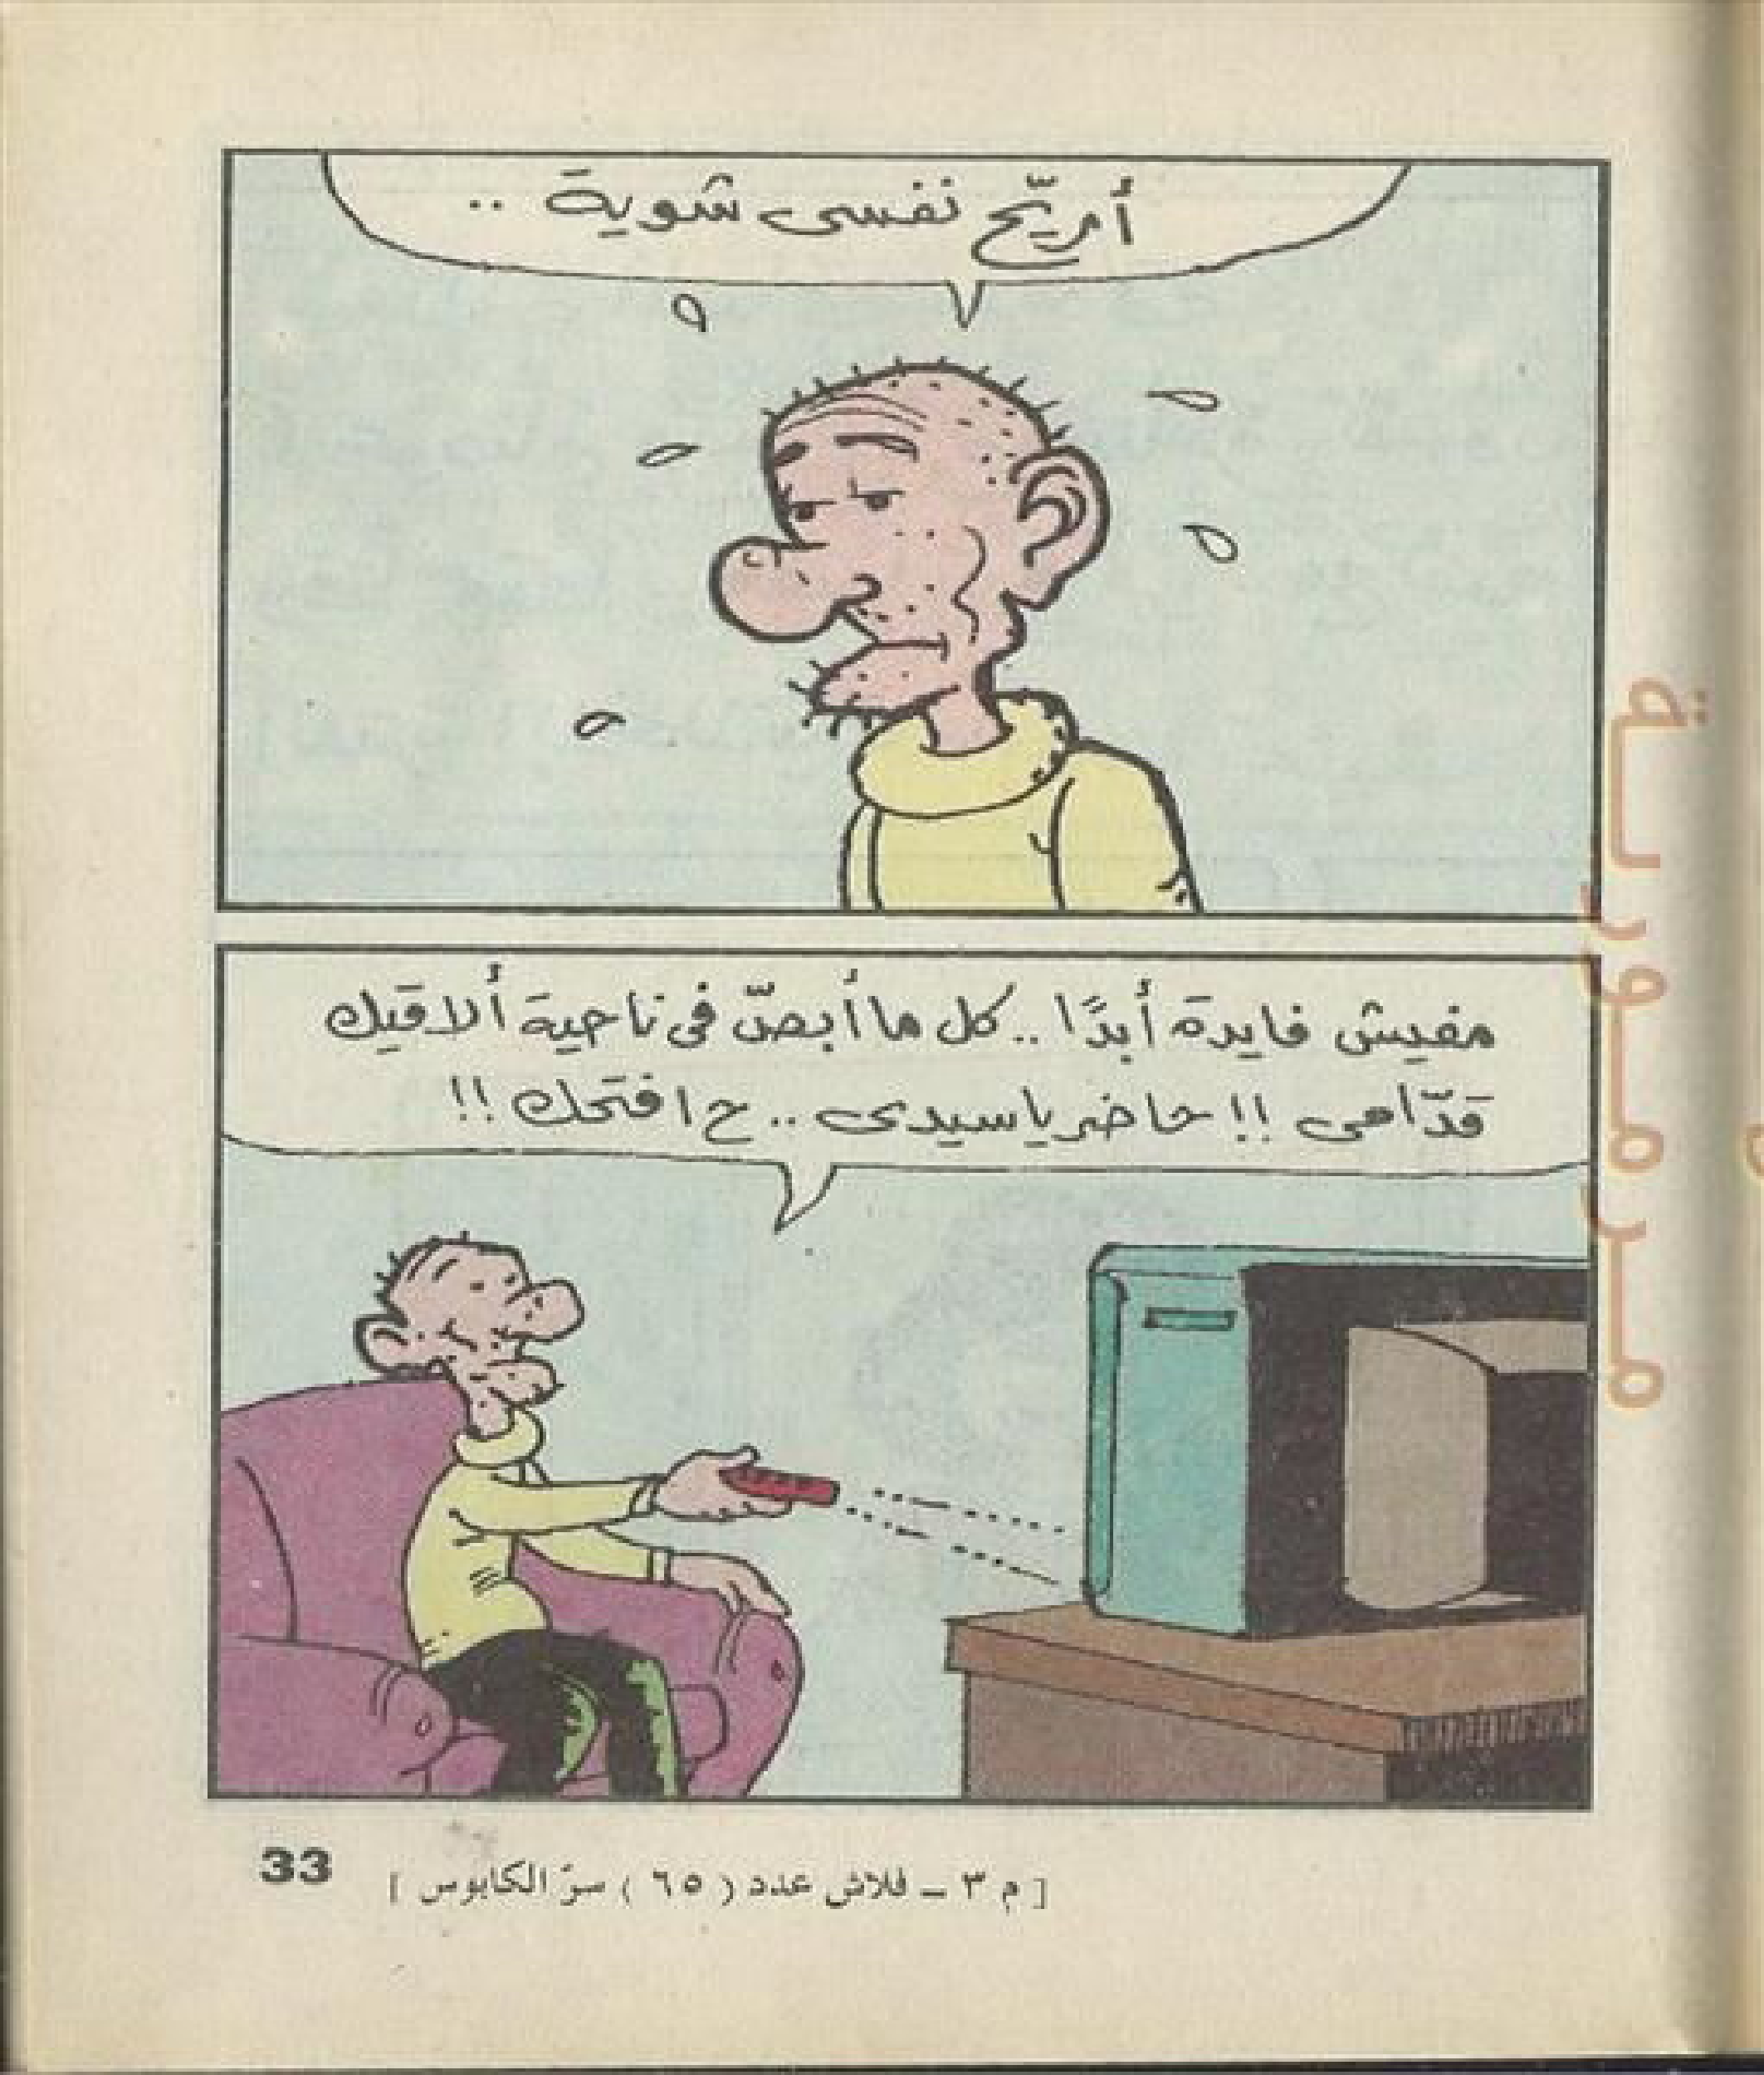 أريّح نفسى شوية ..
مفيش فايدة أبدًا .. كل ما أبصّ فى ناحية ألاقيك
قدّامى !! حاضر يا سيدى .. ح افتحك !!
مرمورية
33
[ م ٣ – فلاش عدد ( ٦٥ ) سرّ الكابوس ]